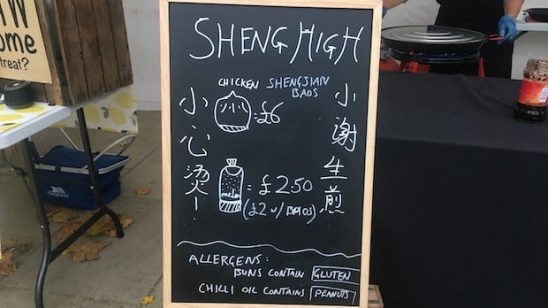 SHENG HIGH
CHICKEN SHENGJIAN
BAOS
=£6
小心烫!
小谢生煎
= £2.50
(£2 w/BAOS)
ALLERGENS:
BUNS CONTAIN GLUTEN
CHILLI OIL CONTAINS PEANUTS
ome
treat?